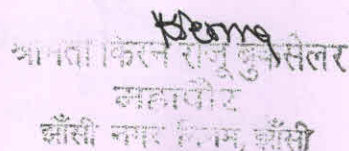 श्रीमती किरन राजू बुकसेलर
महापौर
झाँसी नगर निगम, झाँसी